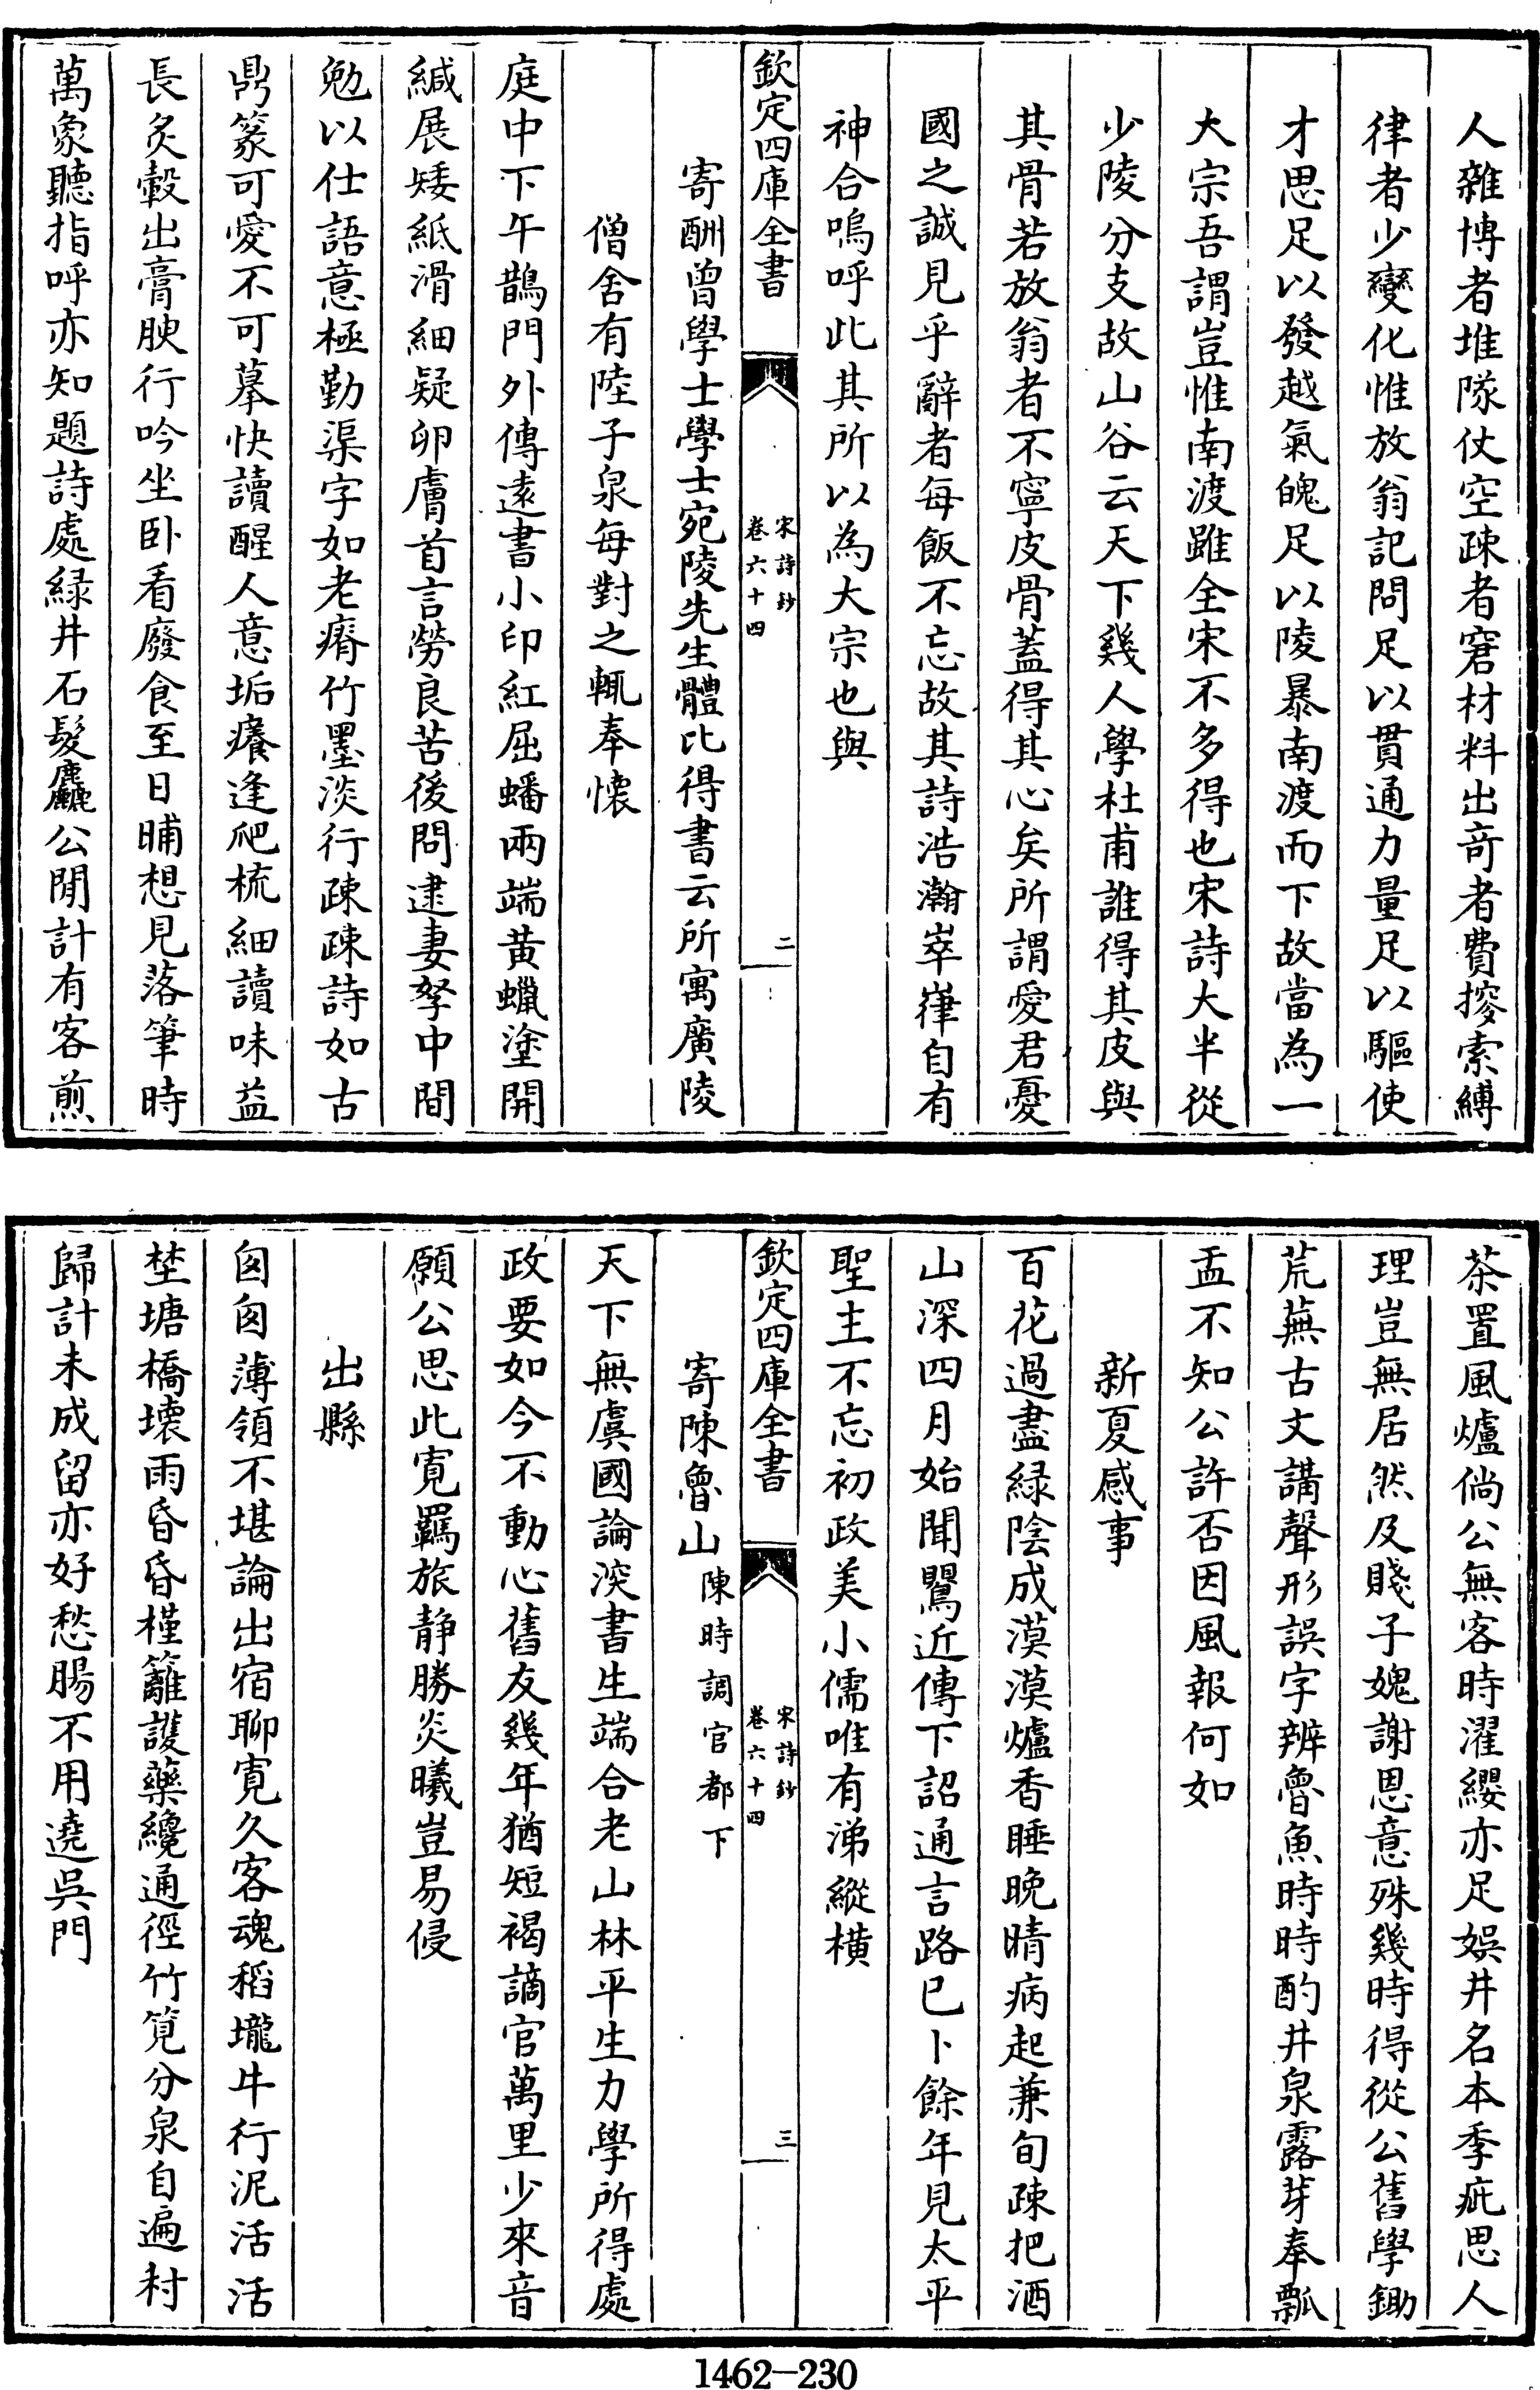 人雜博者堆隊仗空疎者窘材料出竒者費摉索縛
律者少變化惟放翁記問足以貫通力量足以驅使
才思足以發越氣魄足以陵暴南渡而下故當為一
大宗吾謂豈惟南渡雖全宋不多得也宋詩大半從
少陵分支故山谷云天下幾人學杜甫誰得其皮與
其骨若放翁者不寧皮骨蓋得其心矣所謂愛君憂
國之誠見乎辭者每飯不忘故其詩浩瀚崒嵂自有
神合嗚呼此其所以為大宗也與
欽定四庫全書
宋詩鈔
卷六十四
二
寄酬曾學士學士宛陵先生體比得書云所寓廣陵
僧舍有陸子泉每對之輒奉懷
庭中下午鵲門外傳逺書小印紅屈蟠兩端黄蠟塗開
緘展矮紙滑細疑卵膚首言勞良苦後問逮妻孥中間
勉以仕語意極勤渠字如老瘠竹墨淡行疎疎詩如古
鼎篆可愛不可摹快讀醒人意垢癢逢爬梳細讀味益
長炙轂出膏腴行吟坐卧看廢食至日晡想見落筆時
萬象聽指呼亦知題詩處緑井石髮麤公閒計有客煎
茶置風爐倘公無客時濯纓亦足娯井名本季疵思人
理豈無居然及賤子媿謝恩意殊幾時得從公舊學鋤
荒蕪古文講聲形誤字辨魯魚時時酌井泉露芽奉瓢
盂不知公許否因風報何如
新夏感事
百花過盡緑陰成漠漠爐香睡晚晴病起兼旬疎把酒
山深四月始聞鸎近傳下詔通言路已卜餘年見太平
聖主不忘初政美小儒唯有涕縱横
欽定四庫全書
宋詩鈔
卷六十四
三
寄陳魯山陳時調官都下
天下無虞國論深書生端合老山林平生力學所得處
政要如今不動心舊友幾年猶短褐謫官萬里少來音
願公思此寛羈旅静勝炎曦豈易侵
出縣
匆匆薄領不堪論出宿聊寛久客魂稻壠牛行泥活活
埜塘橋壊雨昏昏槿籬護藥纔通徑竹筧分泉自遍村
歸計未成留亦好愁腸不用遶吳門
1462-230